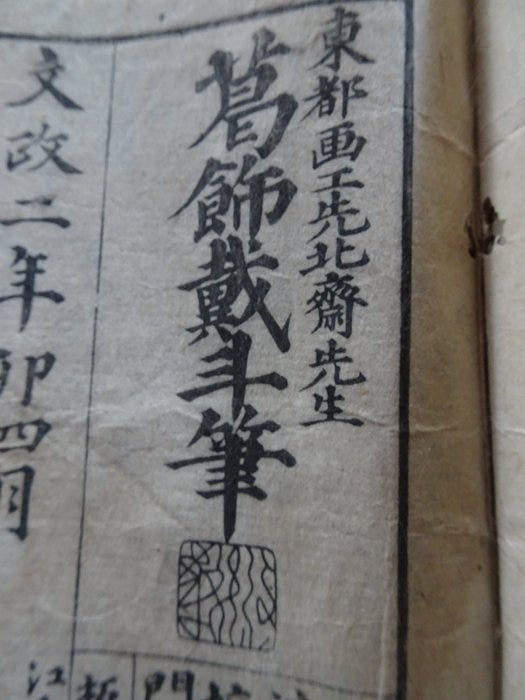 東都画工先北齋先生
葛飾戴斗筆
文政二年卯四月